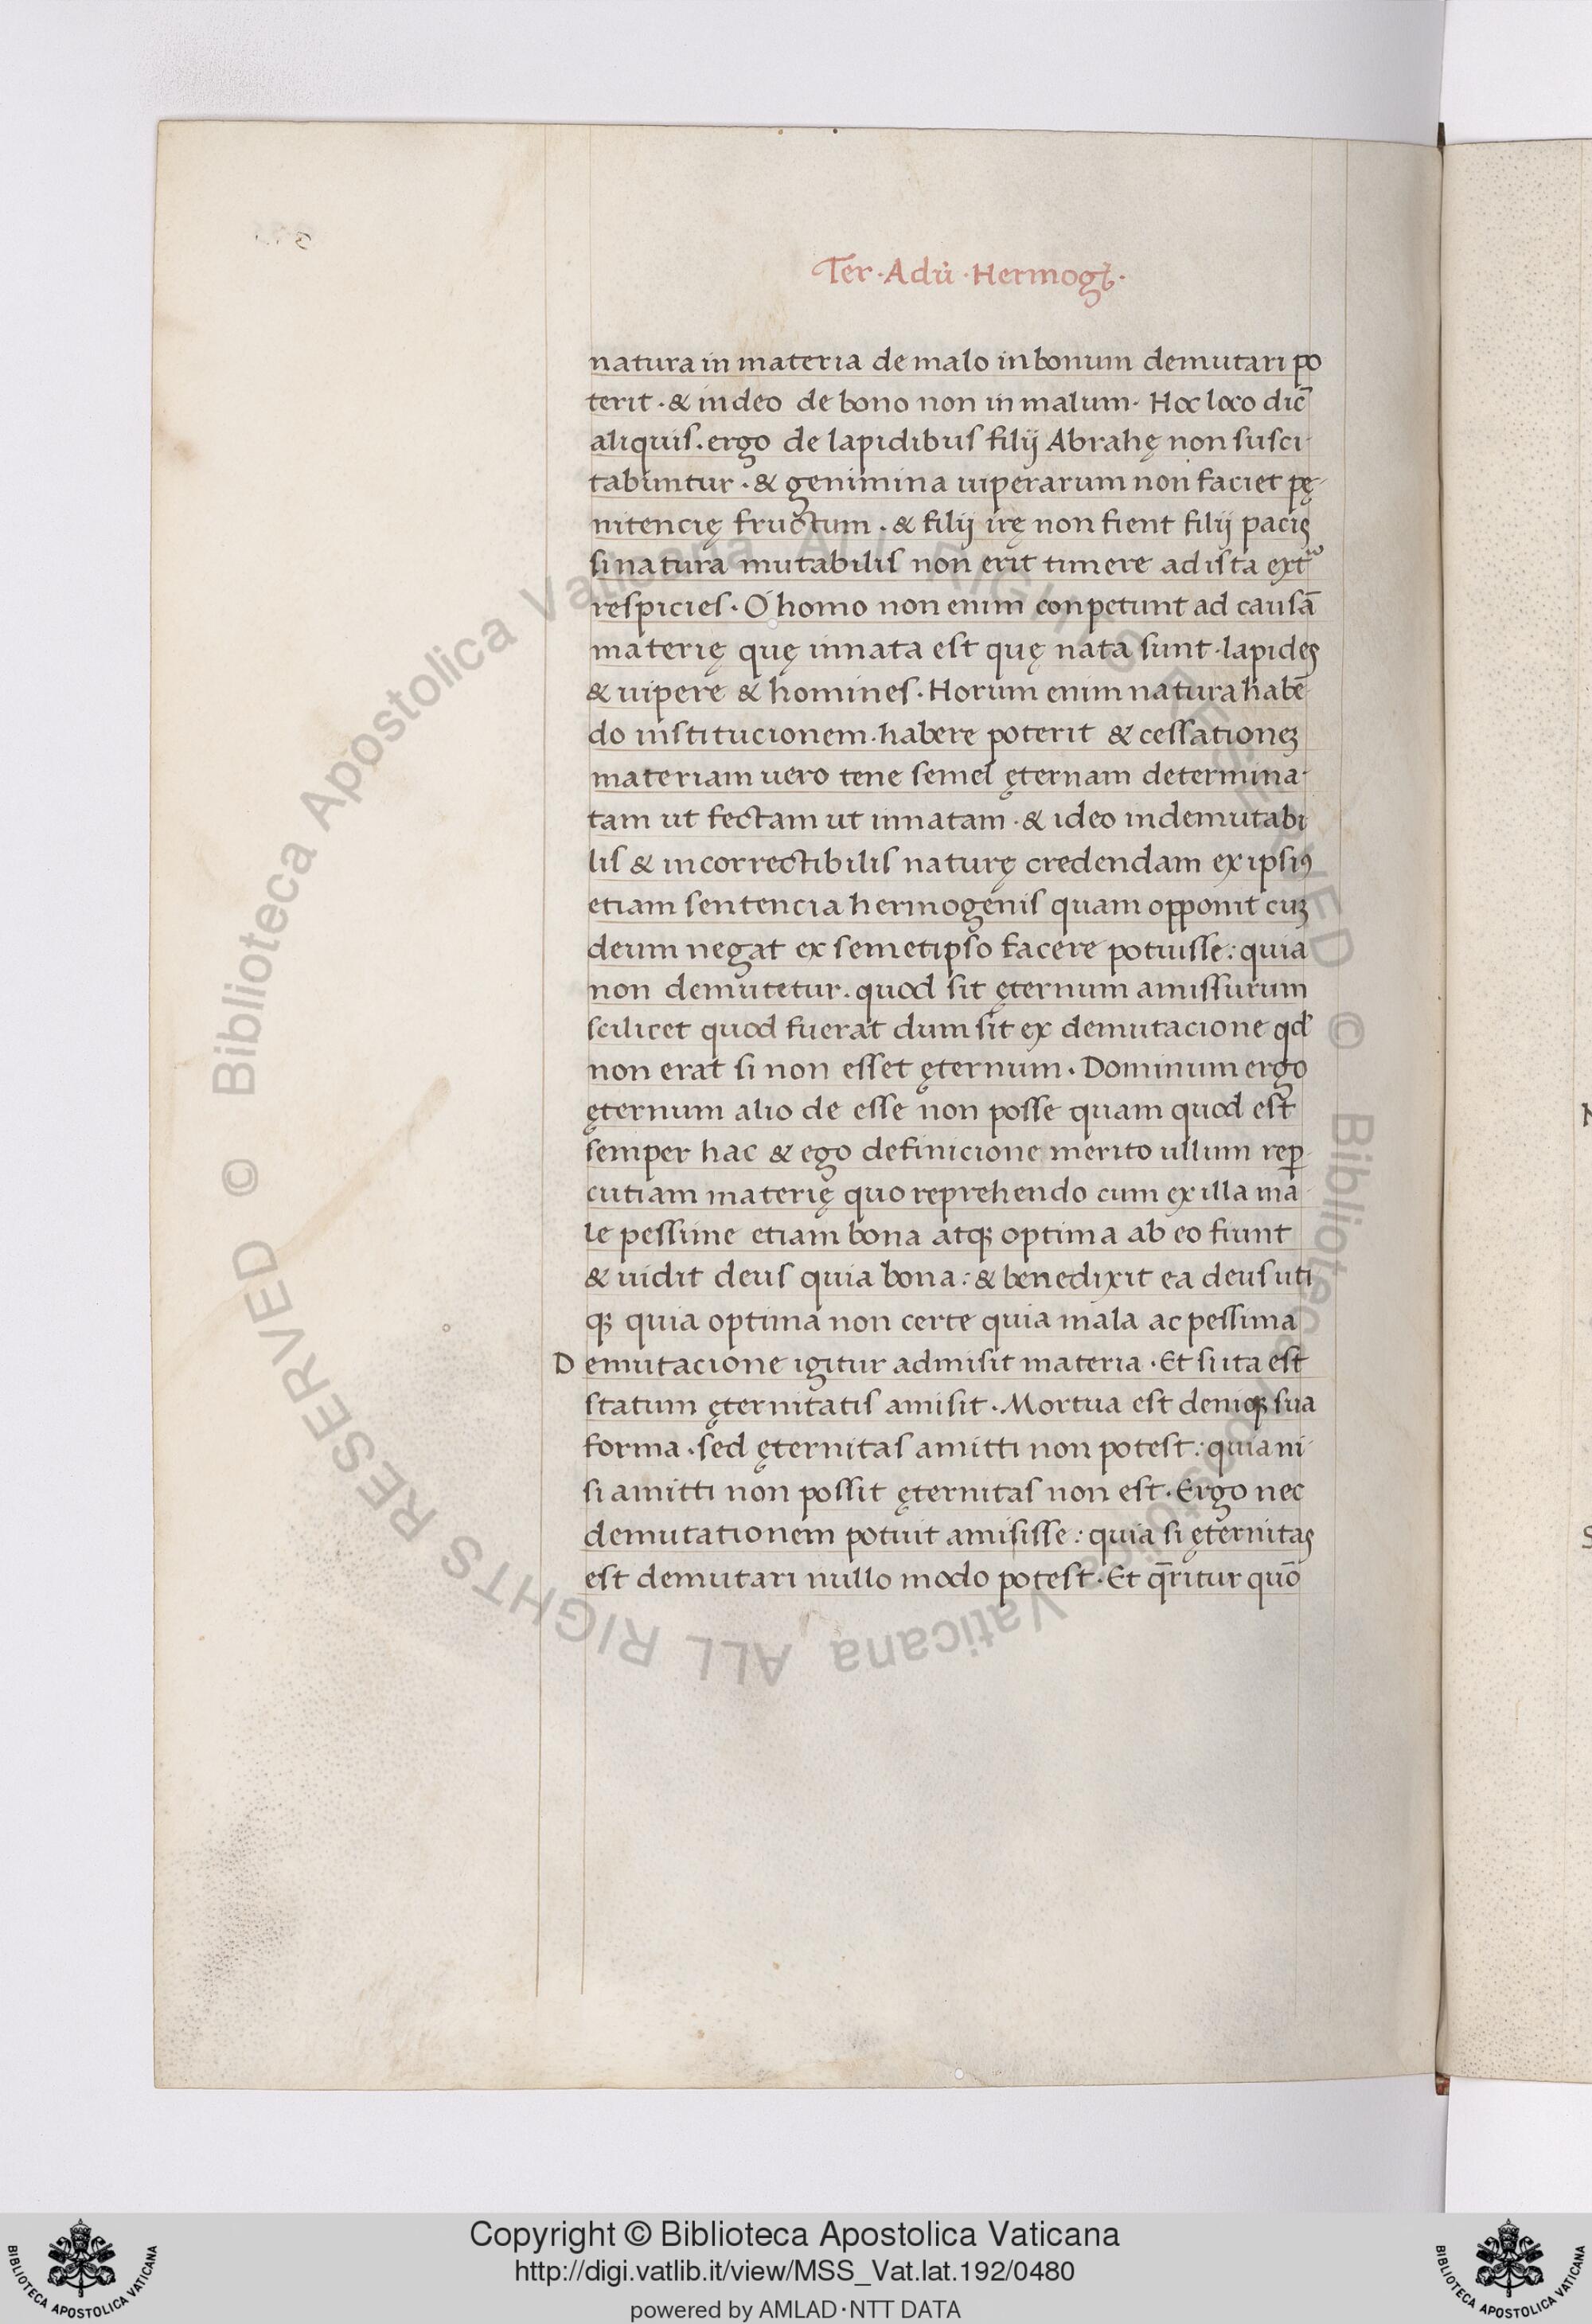 Ter · Adū · Hermogē ·
natura in materia de malo in bonum demutari po
terit · & in deo de bono non in malum · Hoc loco dic̄
aliquis · ergo de lapidibus filij Abrahę non susci-
tabuntur · & genimina uiperarum non faciet pę-
nitencię fructum · & filij irę non fient filij pacis
si natura mutabilis non erit timere ad ista
respicies · O homo non enim conpetunt ad causā
materię quę innata est quę nata sunt · lapides
& uipere & homines · Horum enim natura habē-
do institucionem · habere poterit & cessationeꝫ
materiam uero tene semel ęternam determina-
tam ut fectam ut innatam · & ideo indemutabi
lis & incorrectibilis naturę credendam ex ipsiꝰ
etiam sentencia hermogenis quam opponit cuꝫ
deum negat ex semetipso facere potuisse : quia
non demutetur · quod sit ęternum amissurum
scilicet quod fuerat dum sit ex demutacione qd'
non erat si non esset ęternum · Dominum ergo
ęternum alio de esse non posse quam quod est
semper hac & ego definicione merito ullum reꝑ-
cutiam materię quo reprehendo cum ex illa ma-
le pessime etiam bona atqꝫ optima ab eo fiunt
& uidit deus quia bona : & benedixit ea deus uti
qꝫ quia optima non certe quia mala ac pessima
D emutacione igitur admisit materia · Et si ita est
statum ęternitatis amisit · Mortua est deniqꝫ sua
forma · sed ęternitas amitti non potest : quia ni-
si amitti non possit ęternitas non est · Ergo nec
demutationem potuit amisisse : quia si ęternitas
est demutari nullo modo potest · Et q̄ritur quō
© Biblioteca Apostolica Vaticana ALL RIGHTS RESERVED © Biblioteca Apostolica Vaticana ALL RIGHTS RESERVED
Copyright © Biblioteca Apostolica Vaticana
http://digi.vatlib.it/view/MSS_Vat.lat.192/0480
powered by AMLAD · NTT DATA
BIBLIOTECA APOSTOLICA VATICANA
BIBLIOTECA APOSTOLICA VATICANA